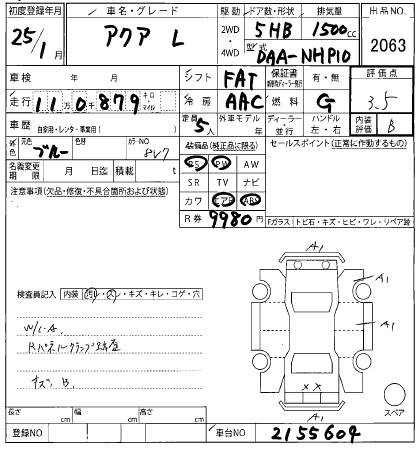 初度登録年月 車名・グレード 駆動 ドア数・形状 排気量 出品NO
25年/1月 アクア L 2WD・4WD 5HB 1500cc 2063
型式 DAA-NHP10
車検 年 月 シフト FAT 保証書 有・無 評価点
走行 11,0千879 キロ・マイル 冷房 AAC 燃料 G 3.5
車歴 自家用・レンタ・事業用( ) 定員 5人 外車モデル年 ディーラー・並行 ハンドル 左・右 内装評価 B
外色 元色 ブルー 色替 カラーNO 8V7 装備品(純正品に限る) セールスポイント(正常に作動するもの)
PS PW AW
名義変更期限 月 日迄 積載 t SR TV ナビ
注意事項(欠品・修復・不具合箇所および状態) カワ エアB ABS
R券 9980円 Fガラス トビ石・キズ・ヒビ・ワレ・リペア跡
A1
A1
A1
検査員記入 内装 汚レ・ス・キズ・キレ・コゲ・穴
W/C.A
Rパネルクランプ跡
キズ、B
X X
A1
スペア
長さ cm 幅 cm 高さ cm
登録NO 車台NO 2155604